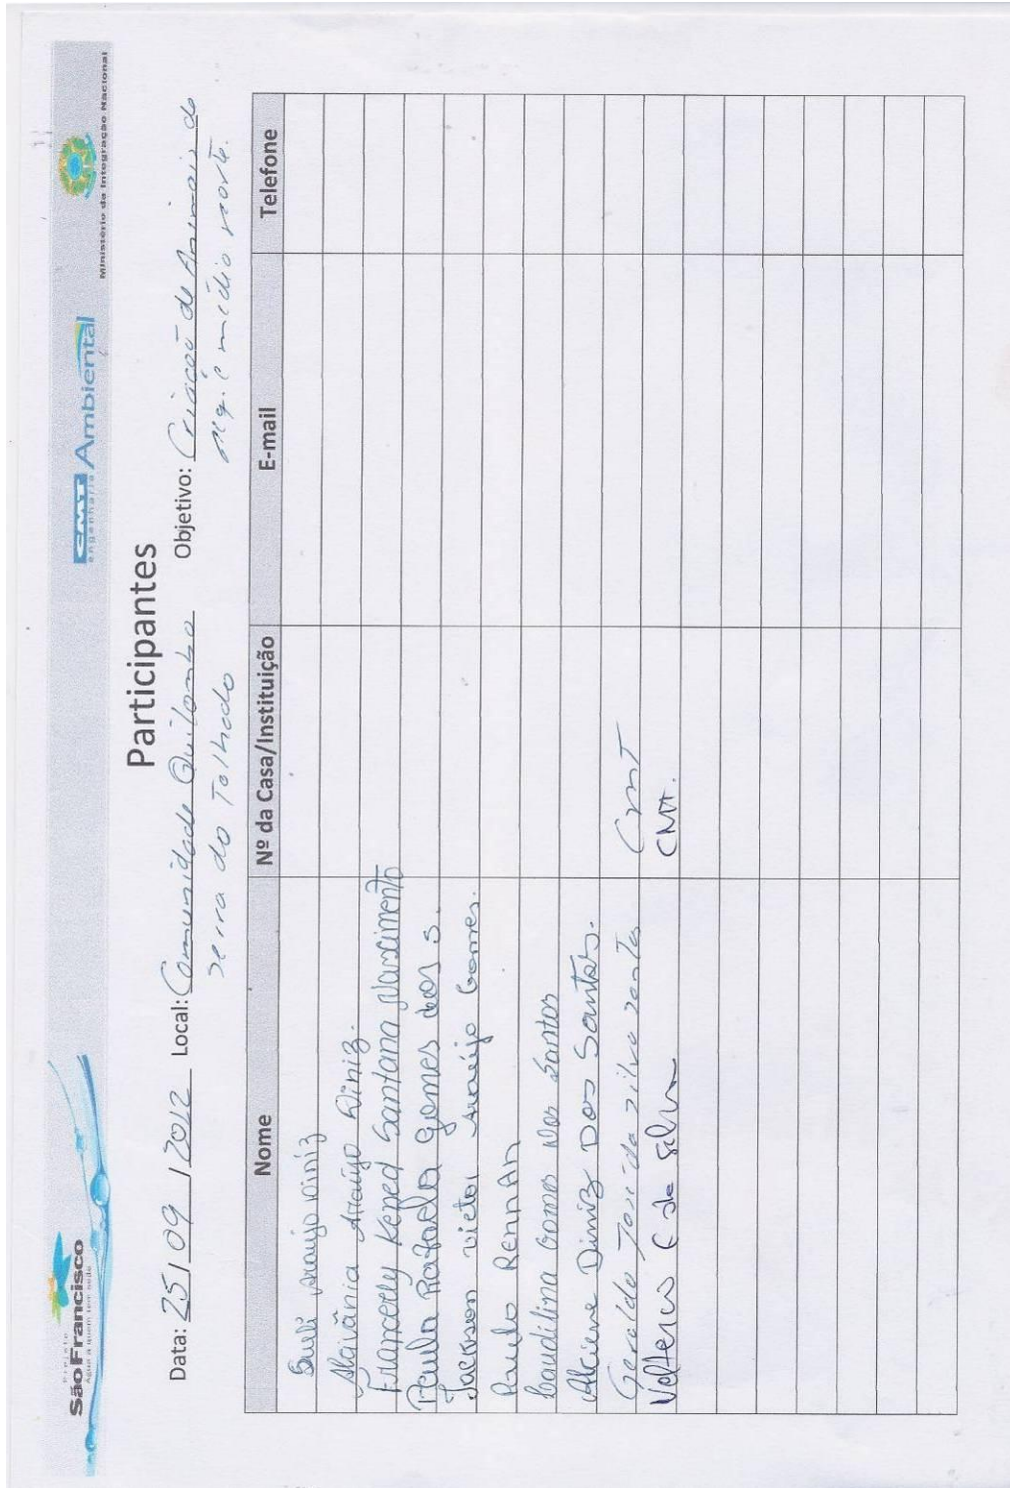 Projeto
São Francisco
Água a quem tem sede
CMT Ambiental
engenharia
Ministério da Integração Nacional
Participantes
Data: 25/09/2012 Local: Comunidade Quilombo Objetivo: Criação de Animais de
serra do Talhado peq. e médio porte.
Nome Nº da Casa/Instituição E-mail Telefone
Sueli Araújo Diniz
Araújo Diniz.
Francerly Santana Nascimento
Paula Rafaela Gomes dos S.
Jackson Victor Araújo Gomes.
Paulo Rennan
Gomes dos Santos
Alciene Diniz Dos Santos.
Geraldo José da Silva Santos CMT
de Silva CMT.